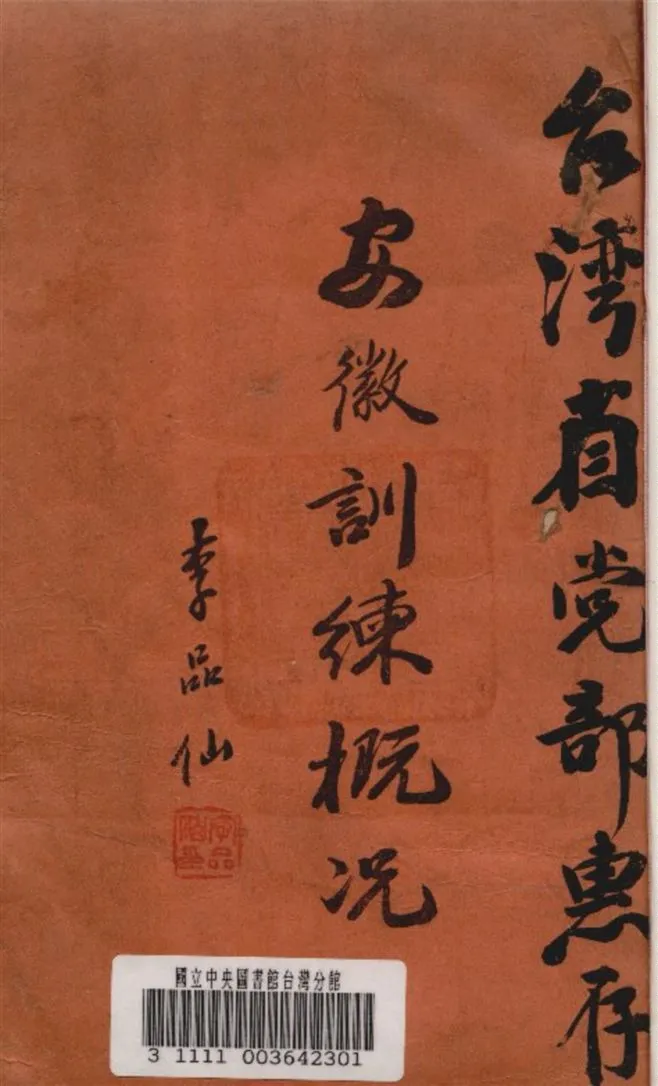 台湾省党部惠存
安徽訓練概况
李品仙
國立中央圖書館台灣分館
3 1111 003642301